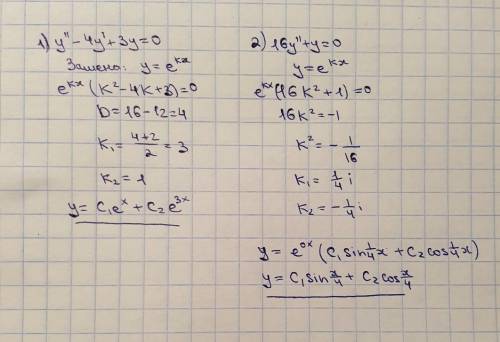 1) y'' - 4y' + 3y = 0
Замена: y = e^{kx}
e^{kx}(k² - 4k + 3) = 0
D = 16 - 12 = 4
k₁ = \frac{4+2}{2} = 3
k₂ = 1
y = C₁e^x + C₂e^{3x}
2) 16y'' + y = 0
y = e^{kx}
e^{kx}(16k² + 1) = 0
16k² = -1
k² = -\frac{1}{16}
k₁ = \frac{1}{4}i
k₂ = -\frac{1}{4}i
y = e^{0x}(C₁ sin\frac{1}{4}x + C₂ cos\frac{1}{4}x)
y = C₁ sin\frac{x}{4} + C₂ cos\frac{x}{4}